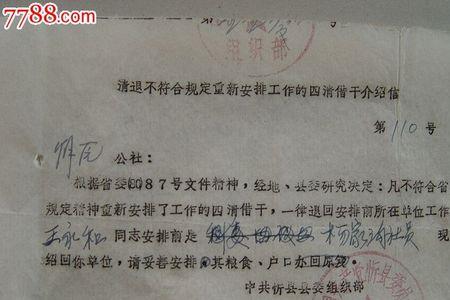 7788.com
第 号
组织部
清退不符合规定重新安排工作的四清借干介绍信
第 110 号
公社：
根据省委(80)87号文件精神，经地、县委研究决定：凡不符合省
规定精神重新安排了工作的四清借干，一律退回安排前所在单位工作
王永和 同志安排前是 杨家湾社员 现
绍回你单位，请妥善安排，其粮食、户口办回原
中共忻县县委组织部